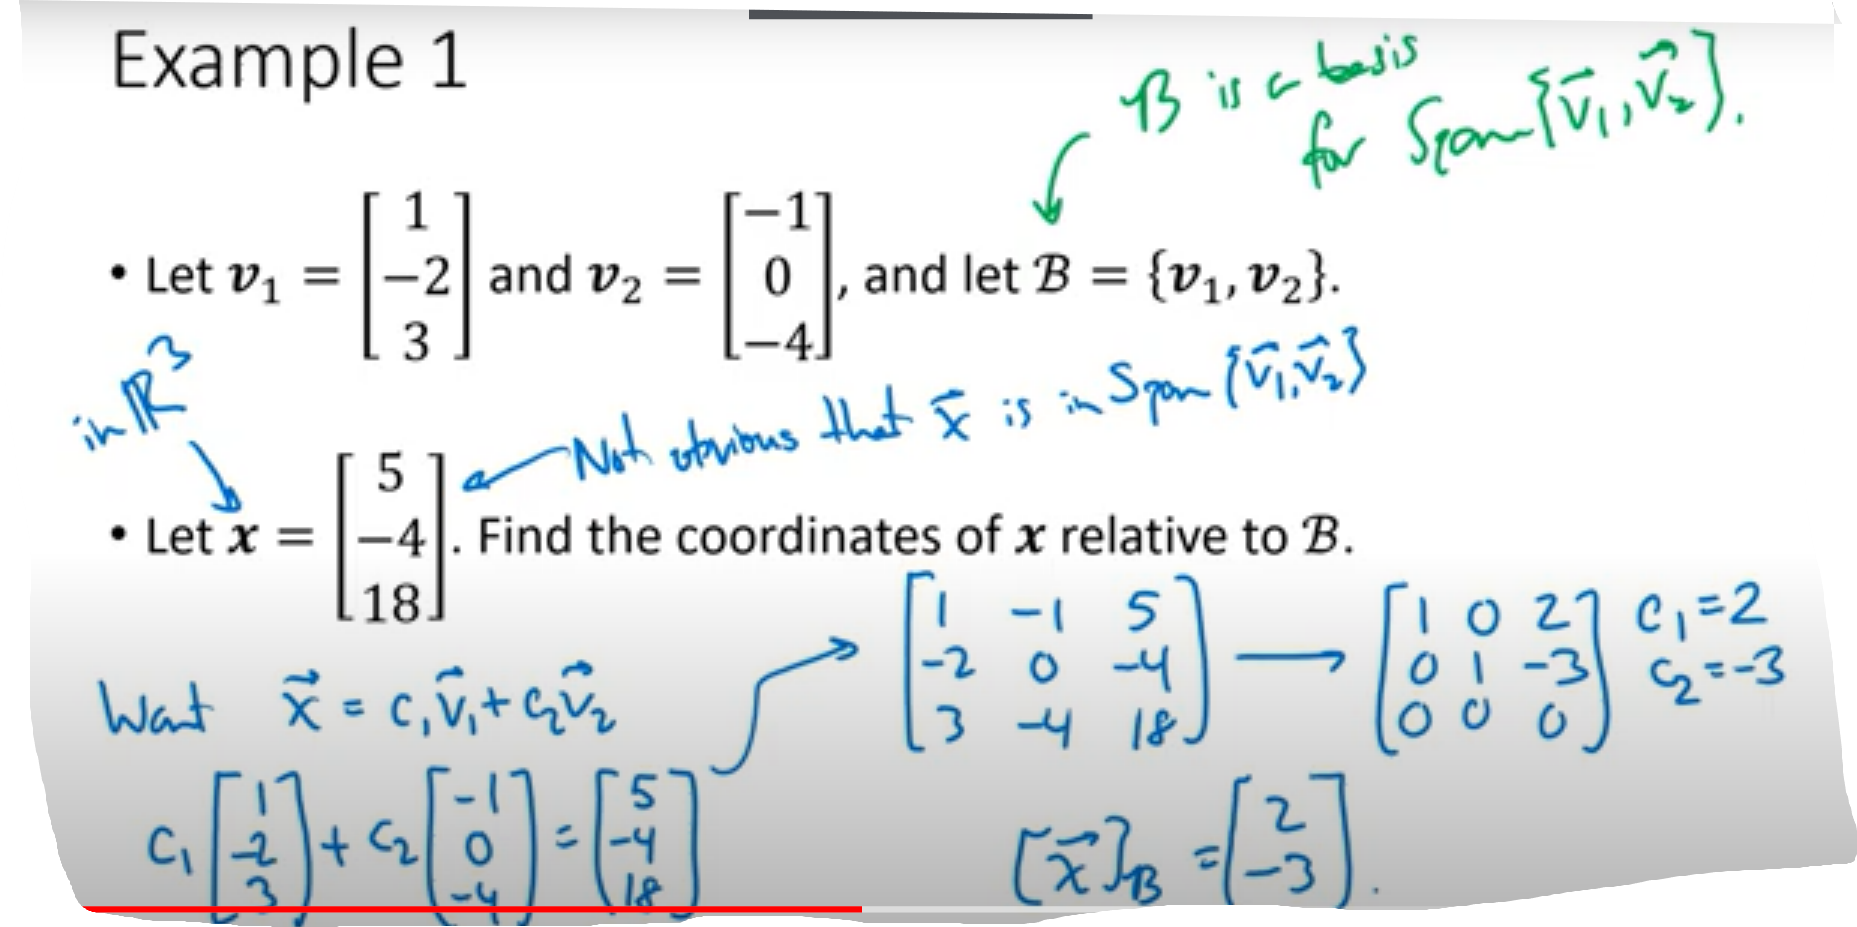 Example 1
B is a basis
for Span{v⃗₁, v⃗₂}.
• Let v₁ = [1 -2 3] and v₂ = [-1 0 -4], and let B = {v₁, v₂}.
in ℝ³
Not obvious that x⃗ is in Span {v⃗₁, v⃗₂}
• Let x = [5 -4 18]. Find the coordinates of x relative to B.
Want x⃗ = c₁v⃗₁ + c₂v⃗₂
c₁[1 -2 3] + c₂[-1 0 -4] = [5 -4 18]
[1 -1 5
-2 0 -4
3 -4 18]
→
[1 0 2
0 1 -3
0 0 0]
c₁ = 2
c₂ = -3
[x⃗]B = [2 -3].